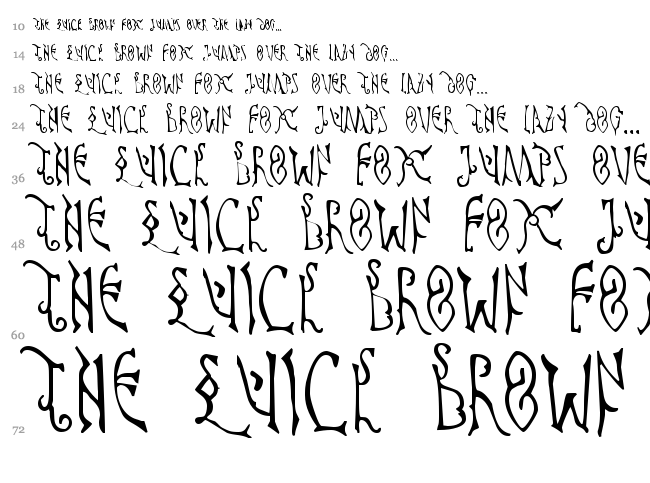 10 THE QUICK BROWN FOX JUMPS OVER THE LAZY DOG...
14 THE QUICK BROWN FOX JUMPS OVER THE LAZY DOG...
18 THE QUICK BROWN FOX JUMPS OVER THE LAZY DOG...
24 THE QUICK BROWN FOX JUMPS OVER THE LAZY DOG...
36 THE QUICK BROWN FOX JUMPS OVE
48 THE QUICK BROWN FOX JU
60 THE QUICK BROWN FO
72 THE QUICK BROWN